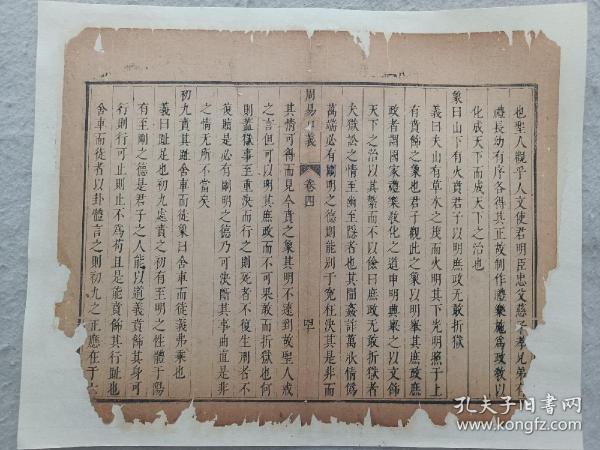 也聖人觀乎人文使君明臣忠父慈子孝兄弟
禮長幼有序各得其正故制作禮樂施爲政教以
化成天下而成天下之治也
象曰山下有火賁君子以明庶政无敢折獄
義曰夫山有草木之茂而火明其下光明照于上
有賁飾之象也君子觀此之象以明舉其庶政庶
政者謂國家禮樂教化之道申明典彝之以文飾
天下之治以其繫而不以儉曰庶政无敢折獄者
夫獄訟之情至幽至隱者也其間姦詐萬狀情僞
萬端必有剛明之德則能别于寃枉決其是非而
周易口義 卷四
其情可得而見今賁之象其明不遠到故聖人戒
之言但可以明其庶政而不可果敢而折獄也何
則蓋獄事至重決而行之則死者不復生刑者不
復贖是必有剛明之德乃可決斷其事曲直是非
之情无所不當矣
初九賁其趾舍車而徒象曰舍車而徒義弗乗也
義曰趾足也初九處賁之初有至明之性體于陽
有至剛之德是君子之人能以道義賁飾其身可
行則行可止則止不爲苟且是能賁飾其行趾也
舍車而徒者以卦體言之則初九之正應在于六
孔夫子旧書网
www.kongfz.com